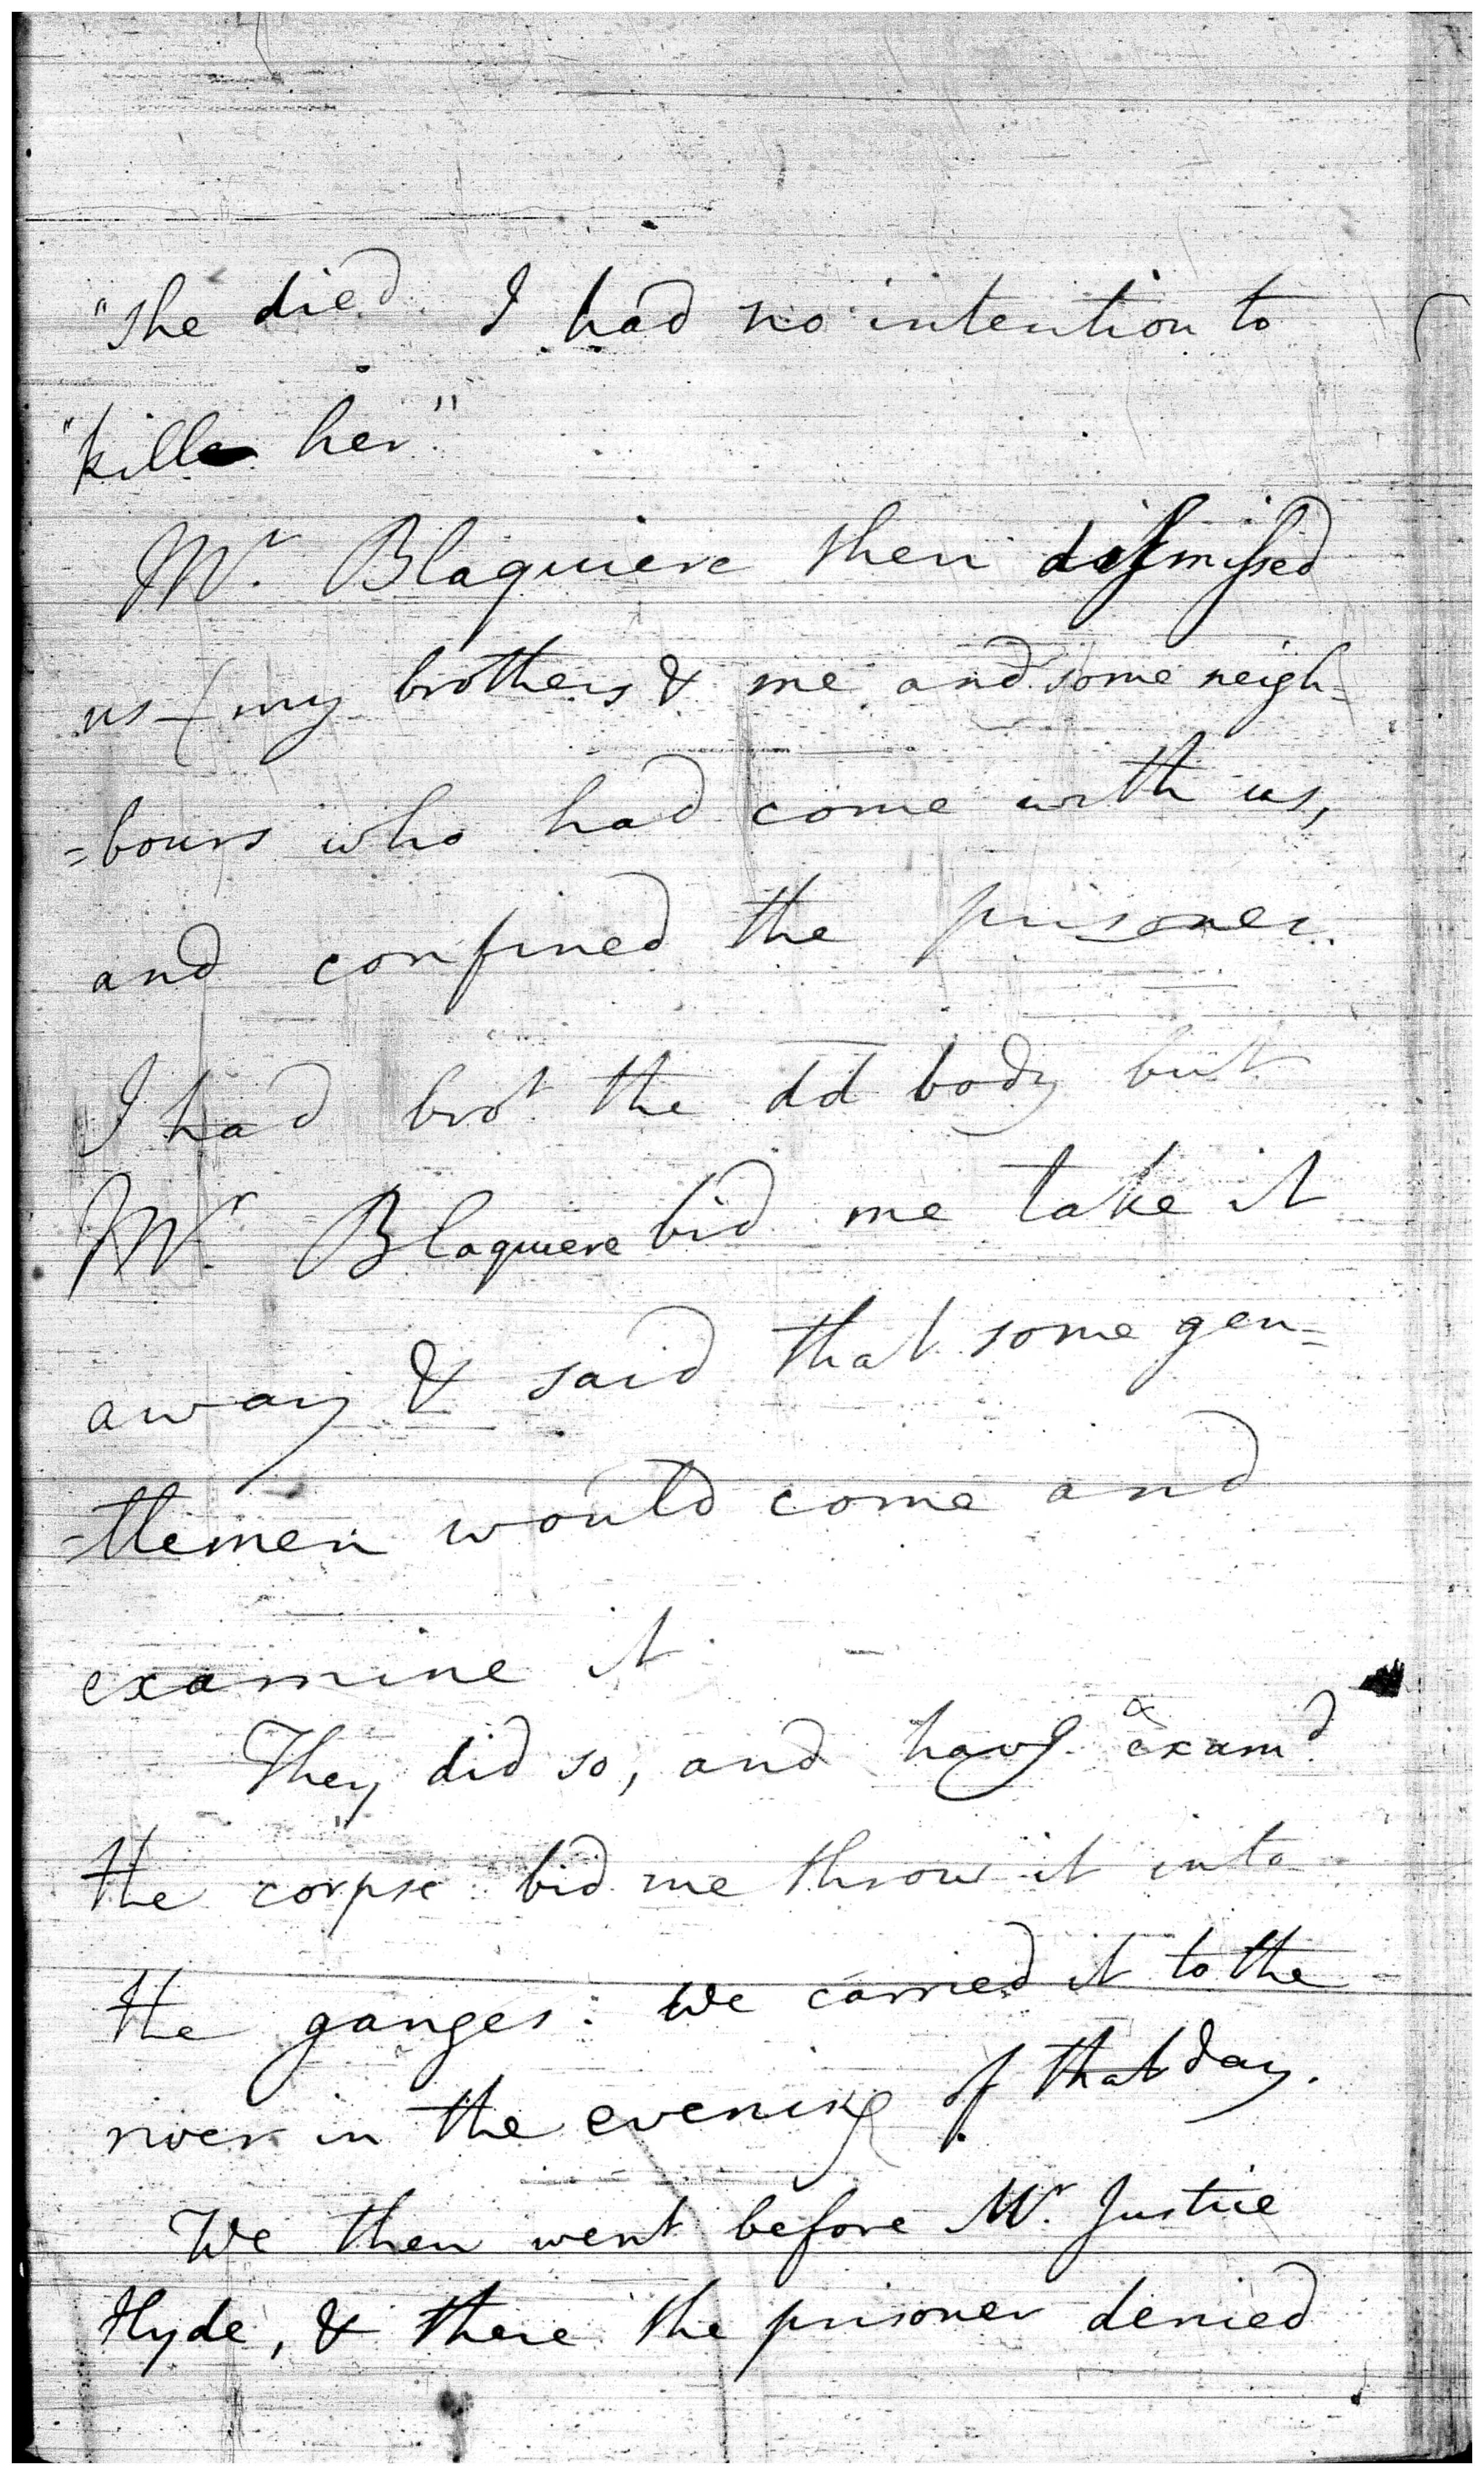 "she died. I had no intention to
"kill her."
Mr. Blaquiere then dismissed
us (my brothers & me and some neigh=
=bours who had come with us,
and confined the prisoner.
I had brot the dd body but
Mr. Blaquiere bid me take it
away & said that some gen=
=tlemen would come and
examine it
They did so, and havg examd
the corpse bid me throw it into
the ganges. We carried it to the
river in the evening of that day.
We then went before Mr. Justice
Hyde, & there the prisoner denied